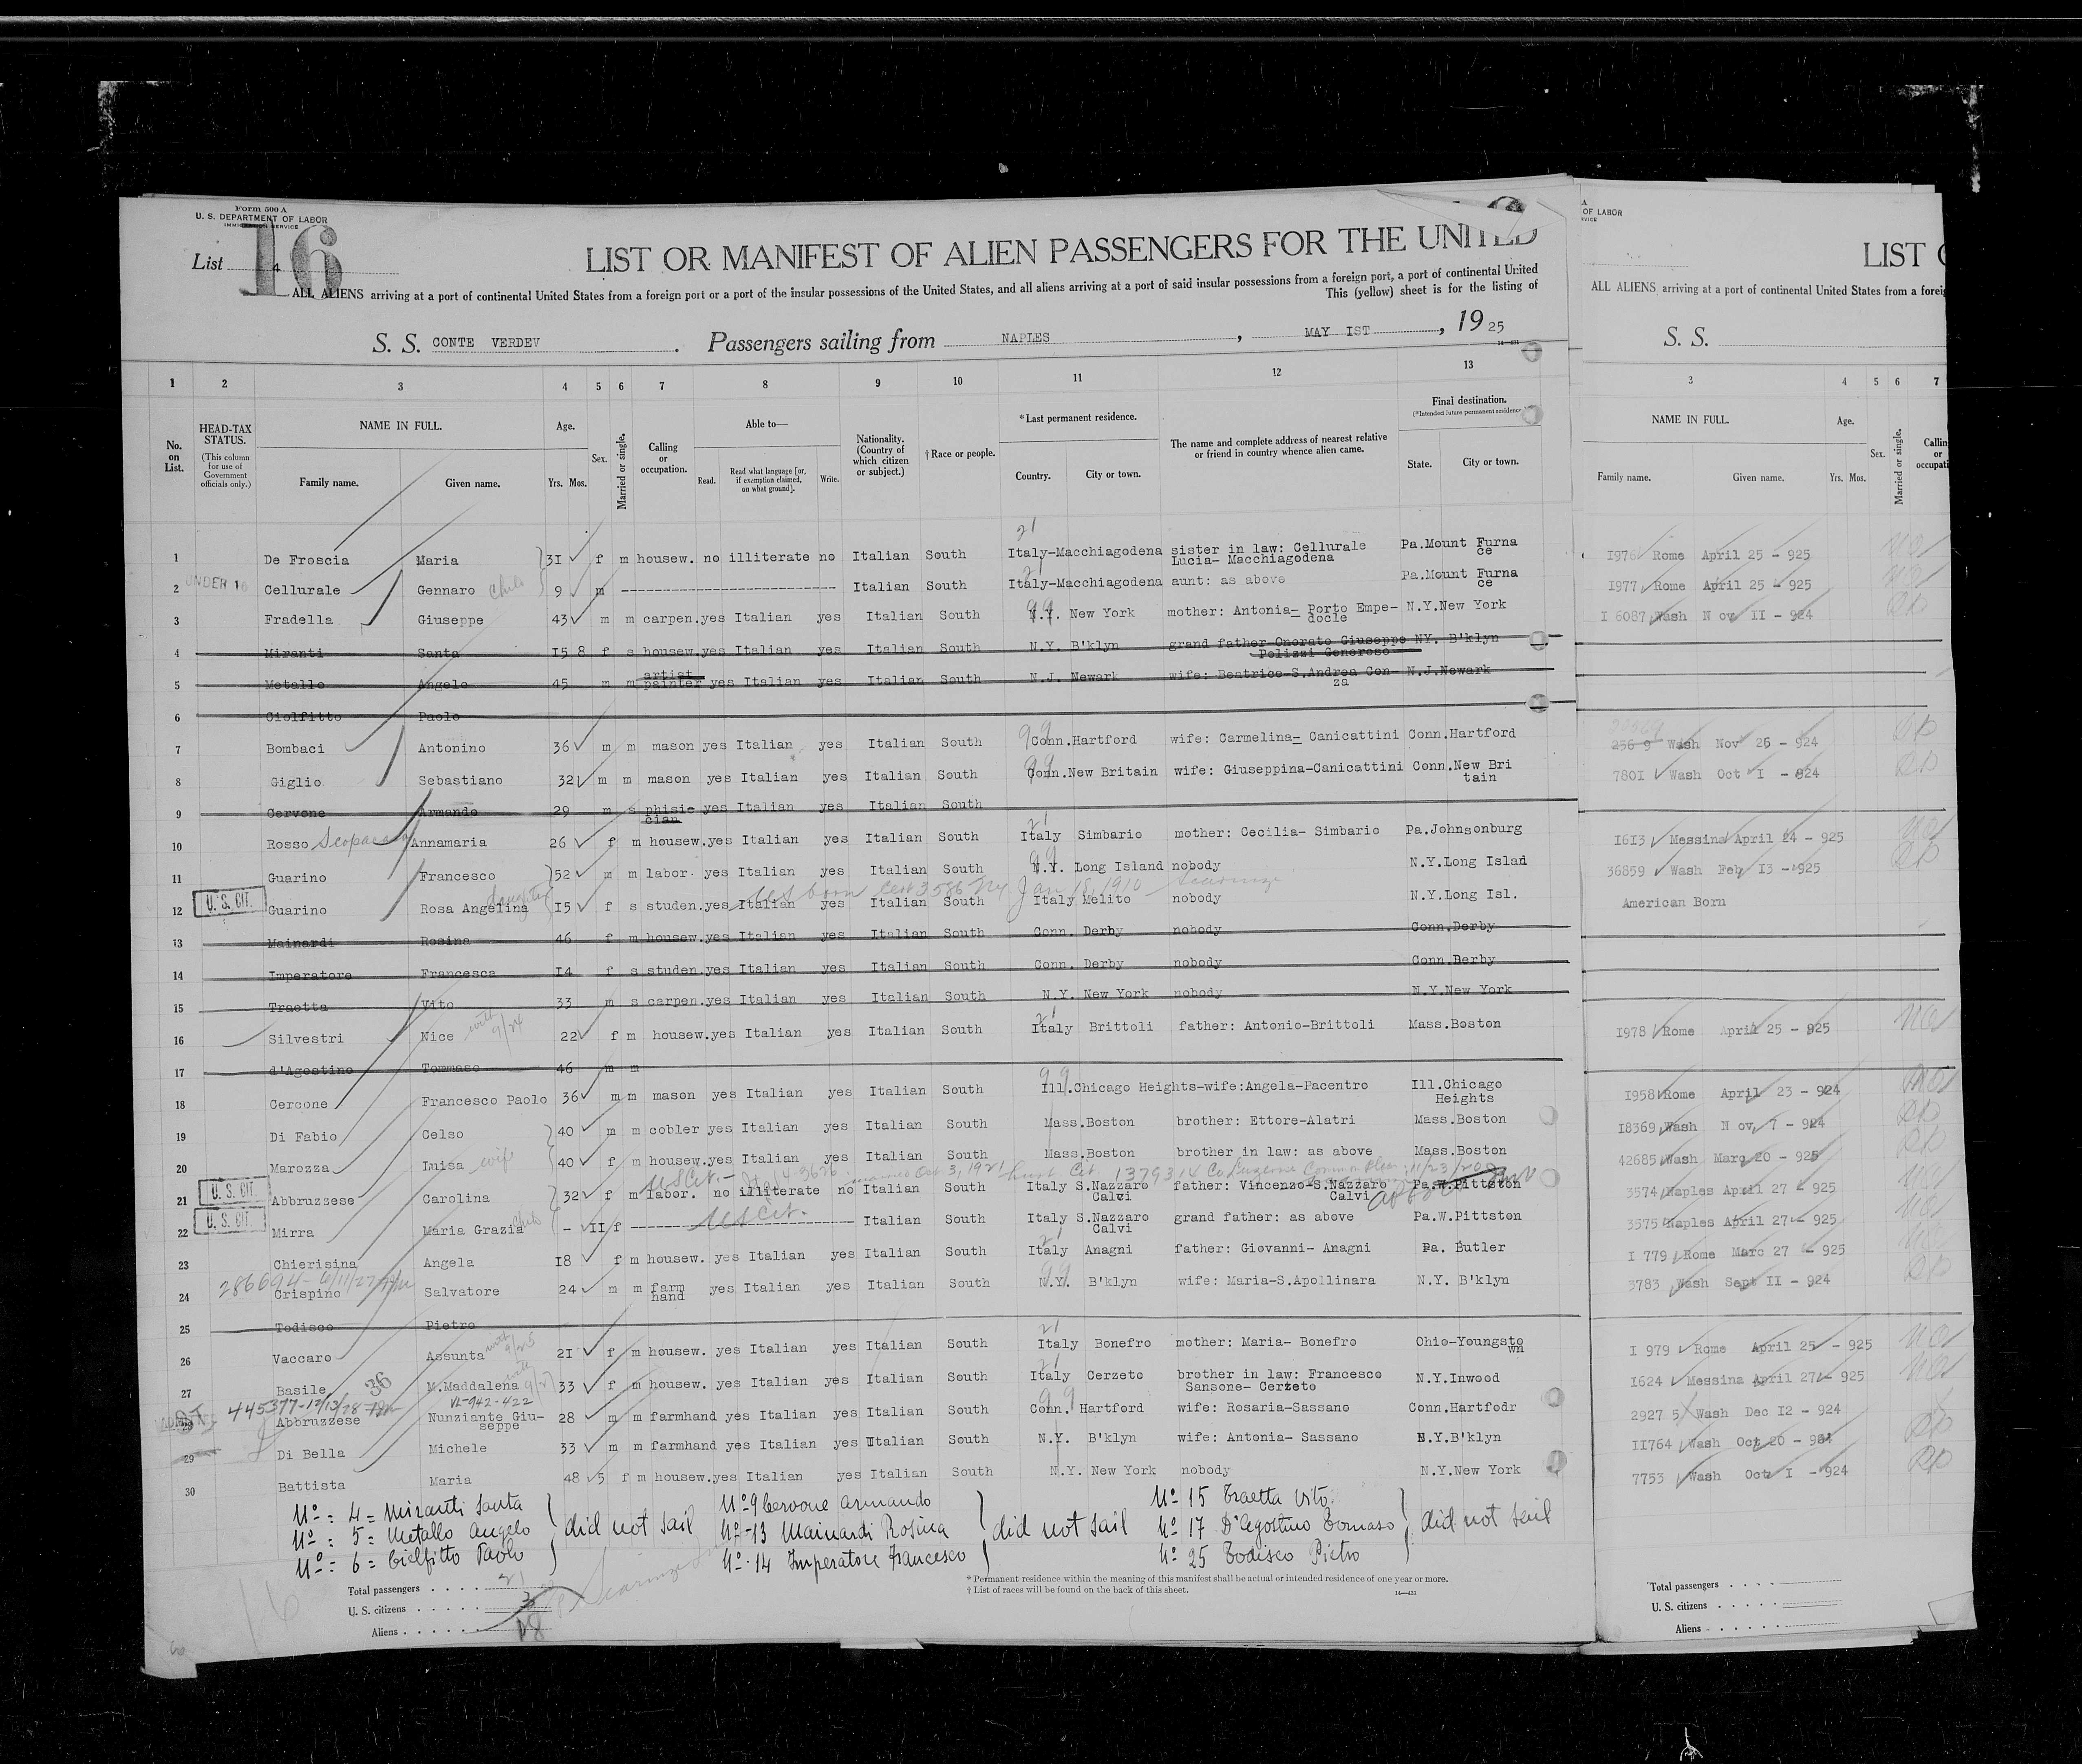 Form 500 A
U. S. DEPARTMENT OF LABOR
IMMIGRATION SERVICE
16
List 4
LIST OR MANIFEST OF ALIEN PASSENGERS FOR THE UNITED
ALL ALIENS arriving at a port of continental United States from a foreign port or a port of the insular possessions of the United States, and all aliens arriving at a port of said insular possessions from a foreign port, a port of continental United
This (yellow) sheet is for the listing of
S. S. CONTE VERDEV . Passengers sailing from NAPLES , MAY IST , 19 25
14—421
1 2 3 4 5 6 7 8 9 10 11 12 13
No. on List.
HEAD-TAX STATUS.
(This column for use of Government officials only.)
NAME IN FULL.
Family name. Given name.
Age.
Yrs. Mos.
Sex.
Married or single.
Calling or occupation.
Able to—
Read. Read what language [or, if exemption claimed, on what ground]. Write.
Nationality. (Country of which citizen or subject.)
†Race or people.
*Last permanent residence.
Country. City or town.
The name and complete address of nearest relative or friend in country whence alien came.
Final destination.
(*Intended future permanent residence)
State. City or town.
21
1 De Froscia Maria 3I f m housew. no illiterate no Italian South Italy-Macchiagodena sister in law: Cellurale Lucia- Macchiagodena Pa.Mount Furna ce
2 UNDER 16 Cellurale Gennaro child 9 m Italian South Italy-Macchiagodena aunt: as above Pa.Mount Furna ce
3 Fradella Giuseppe 43 m m carpen.yes Italian yes Italian South 99 N.Y. New York mother: Antonia- Porto Empe- docle N.Y.New York
4 Miranti Santa I5 8 f s housew.yes Italian yes Italian South N.Y. B'klyn grand father-Onorato Giuseppe Polizzi Generoso NY. B'klyn
5 Metallo Angelo 45 m m artist painter yes Italian yes Italian South N.J. Newark wife: Beatrice-S.Andrea Con- za N.J.Newark
6 Ciolfitto Paolo
7 Bombaci Antonino 36 m m mason yes Italian yes Italian South 99 Conn.Hartford wife: Carmelina- Canicattini Conn.Hartford
8 Giglio Sebastiano 32 m m mason yes Italian yes Italian South 99 Conn.New Britain wife: Giuseppina-Canicattini Conn.New Bri tain
9 Cervone Armando 29 m s phisic cian yes Italian yes Italian South
10 Rosso Annamaria 26 f m housew.yes Italian yes Italian South 21 Italy Simbario mother: Cecilia- Simbario Pa.Johnsonburg
11 Guarino Francesco 52 m m labor. yes Italian yes Italian South 99 N.Y. Long Island nobody N.Y.Long Islan
US born Cert 3586 NY Jan 18, 1910
12 U. S. CIT. Guarino Rosa Angelina daughter I5 f s studen.yes Italian yes Italian South Italy Melito nobody N.Y.Long Isl.
13 Mainardi Rosina 46 f m housew.yes Italian yes Italian South Conn. Derby nobody Conn.Derby
14 Imperatore Francesca I4 f s studen.yes Italian yes Italian South Conn. Derby nobody Conn.Derby
15 Traetta Vito 33 m s carpen.yes Italian yes Italian South N.Y. New York nobody N.Y.New York
16 Silvestri Nice 22 f m housew.yes Italian yes Italian South 21 Italy Brittoli father: Antonio-Brittoli Mass.Boston
17 d'Agostino Tommaso 46 m m
18 Cercone Francesco Paolo 36 m m mason yes Italian yes Italian South 99 Ill.Chicago Heights-wife:Angela-Pacentro Ill.Chicago Heights
19 Di Fabio Celso 40 m m cobler yes Italian yes Italian South Mass.Boston brother: Ettore-Alatri Mass.Boston
20 Marozza Luisa wife 40 f m housew.yes Italian yes Italian South Mass.Boston brother in law: as above Mass.Boston
US Cit.
21 U. S. CIT. Abbruzzese Carolina 32 f m labor. no illiterate no Italian South Italy S.Nazzaro Calvi father: Vincenzo-S.Nazzaro Calvi Pa.W.Pittston
22 U. S. CIT. Mirra Maria Grazia child - II f US Cit. Italian South Italy S.Nazzaro Calvi grand father: as above Pa.W.Pittston
23 Chierisina Angela I8 f m housew. yes Italian yes Italian South 21 Italy Anagni father: Giovanni- Anagni Pa. Butler
286694-6/11/27
24 Crispino Salvatore 24 m m farm hand yes Italian yes Italian South 99 N.Y. B'klyn wife: Maria-S.Apollinara N.Y. B'klyn
25 Todisco Pietro
26 Vaccaro Assunta 2I f m housew. yes Italian yes Italian South 21 Italy Bonefro mother: Maria- Bonefro Ohio-Youngsto wn
27 Basile 36 M.Maddalena 33 f m housew. yes Italian yes Italian South 21 Italy Cerzeto brother in law: Francesco Sansone- Cerzeto N.Y.Inwood
445377-12/13/28 VL-942-422
28 Abbruzzese Nunziante Giu- seppe 28 m m farmhand yes Italian yes Italian South 99 Conn. Hartford wife: Rosaria-Sassano Conn.Hartfodr
29 Di Bella Michele 33 m m farmhand yes Italian yes Italian South N.Y. B'klyn wife: Antonia- Sassano N.Y.B'klyn
30 Battista Maria 48 5 f m housew.yes Italian yes Italian South N.Y. New York nobody N.Y.New York
Nº = 4 = Miranti Santa
Nº = 5 = Metallo Angelo
Nº = 6 = Cielfitto Paolo
did not sail
Nº 9 Cervone Armando
Nº 13 Mainardi Rosina
Nº 14 Imperatore Francesco
did not sail
Nº 15 Traetta Vito
Nº 17 D'Agostino Tomaso
Nº 25 Todisco Pietro
did not sail
Total passengers . . . . 21
U. S. citizens . . . . . 3
Aliens . . . . . . 18
* Permanent residence within the meaning of this manifest shall be actual or intended residence of one year or more.
† List of races will be found on the back of this sheet.
14—421
A
OF LABOR
VICE
LIST
ALL ALIENS arriving at a port of continental United States from a foreig
S. S.
3 4 5 6 7
NAME IN FULL.
Family name. Given name.
Age.
Yrs. Mos.
Sex.
Married or single.
Callin
or
occupati
I976 Rome April 25 - 925
I977 Rome April 25 - 925
I 6087 Wash Nov II - 924
256 9 Wash Nov 25 - 924
780I Wash Oct I - 924
I6I3 Messina April 24 - 925
36859 Wash Feb I3 - 925
American Born
I978 Rome April 25 - 925
I958 Rome April 23 - 924
I8369 Wash Nov 7 - 924
42685 Wash Marc 20 - 925
3574 Naples April 27 - 925
3575 Naples April 27 - 925
I 779 Rome Marc 27 - 925
3783 Wash Sept II - 924
I 979 Rome April 25 - 925
I624 Messina April 27 - 925
2927 5 Wash Dec I2 - 924
II764 Wash Oct 20 - 924
7753 Wash Oct I - 924
Total passengers . . . .
U. S. citizens . . . . .
Aliens . . . . . .